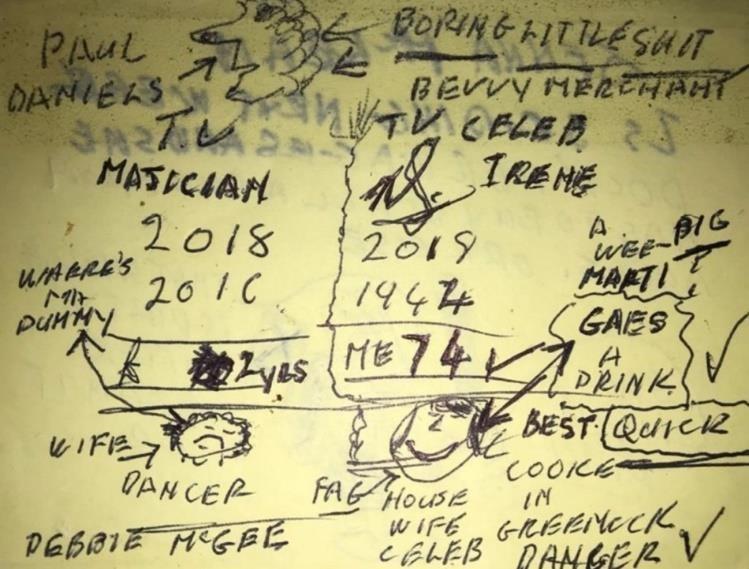 PAUL
DANIELS
T.V
MAJICIAN
2018
2016
WHERE'S
MA
DUMMY
2 YRS
WIFE
DANCER
DEBBIE McGEE
BORING LITTLE SHIT
BEVVY MERCHANT
TV CELEB
IRENE
2018
1944
ME 74
A
WEE BIG
MARTI
GAES
A
DRINK
BEST QUICK
COOKE
IN
GREENOCK
DANGER
FAG
HOUSE
WIFE
CELEB